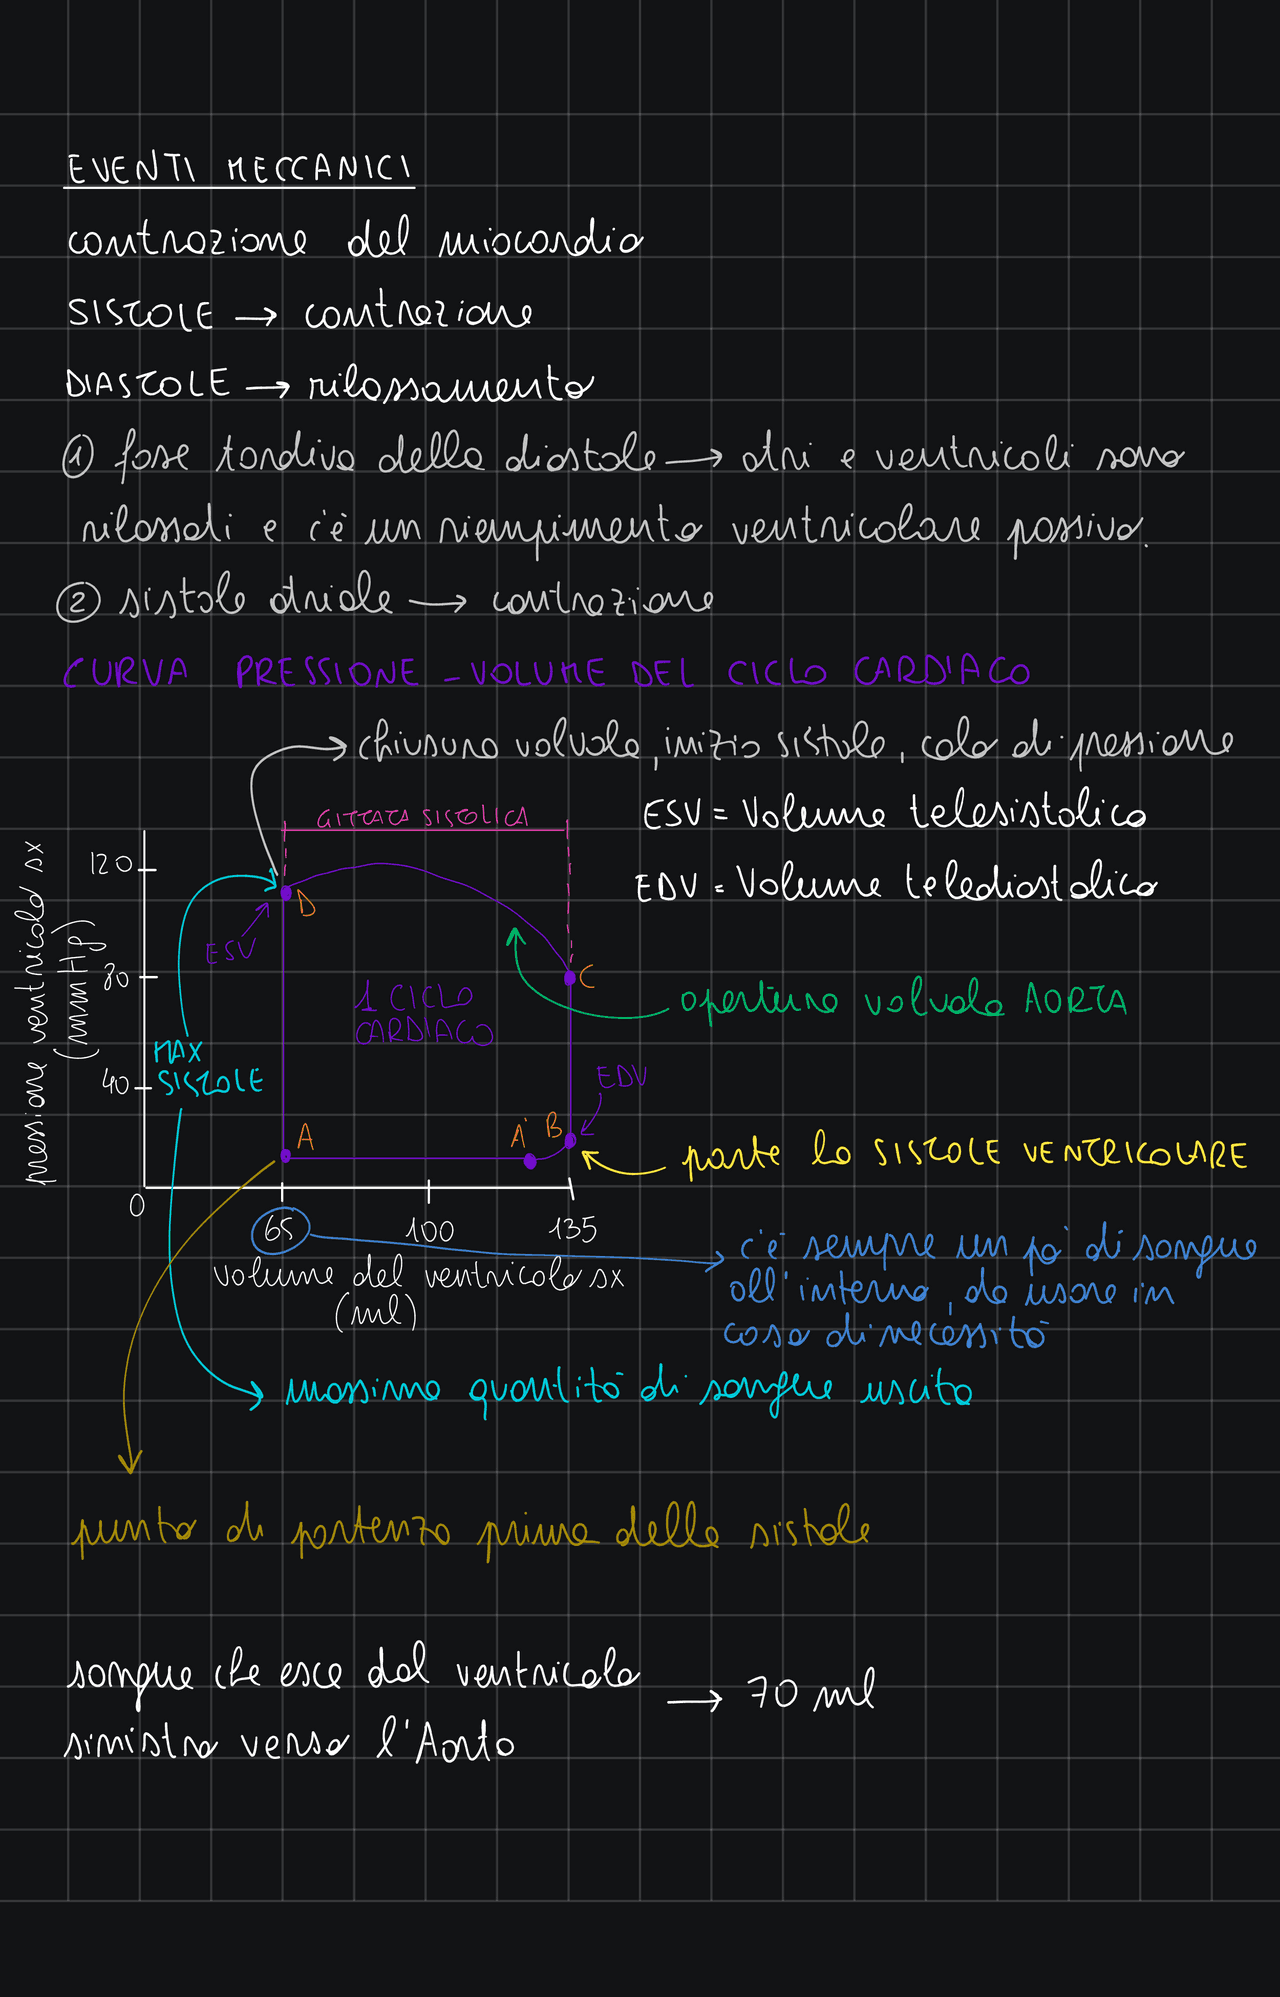 EVENTI MECCANICI
contrazione del miocardio
SISTOLE → contrazione
DIASTOLE → rilassamento
① fase tardiva della diastole → atri e ventricoli sono
rilassati e c'è un riempimento ventricolare passivo.
② sistole atriale → contrazione
CURVA PRESSIONE - VOLUME DEL CICLO CARDIACO
chiusura valvola, inizio sistole, calo di pressione
GITTATA SISTOLICA
ESV = Volume telesistolico
EDV = Volume telediastolico
pressione ventricolo sx
(mmHp)
120
80
40
0
D
ESV
C
1 CICLO
CARDIACO
apertura valvola AORTA
MAX
SISTOLE
EDV
A
A'
B
parte la SISTOLE VENTRICOLARE
65
100
135
volume del ventricolo sx
(ml)
c'è sempre un po' di sangue
all'interno, da usare in
caso di necessità
massima quantità di sangue uscita
punto di partenza prima della sistole
sangue che esce dal ventricolo
sinistro verso l'Aorta
→ 70 ml